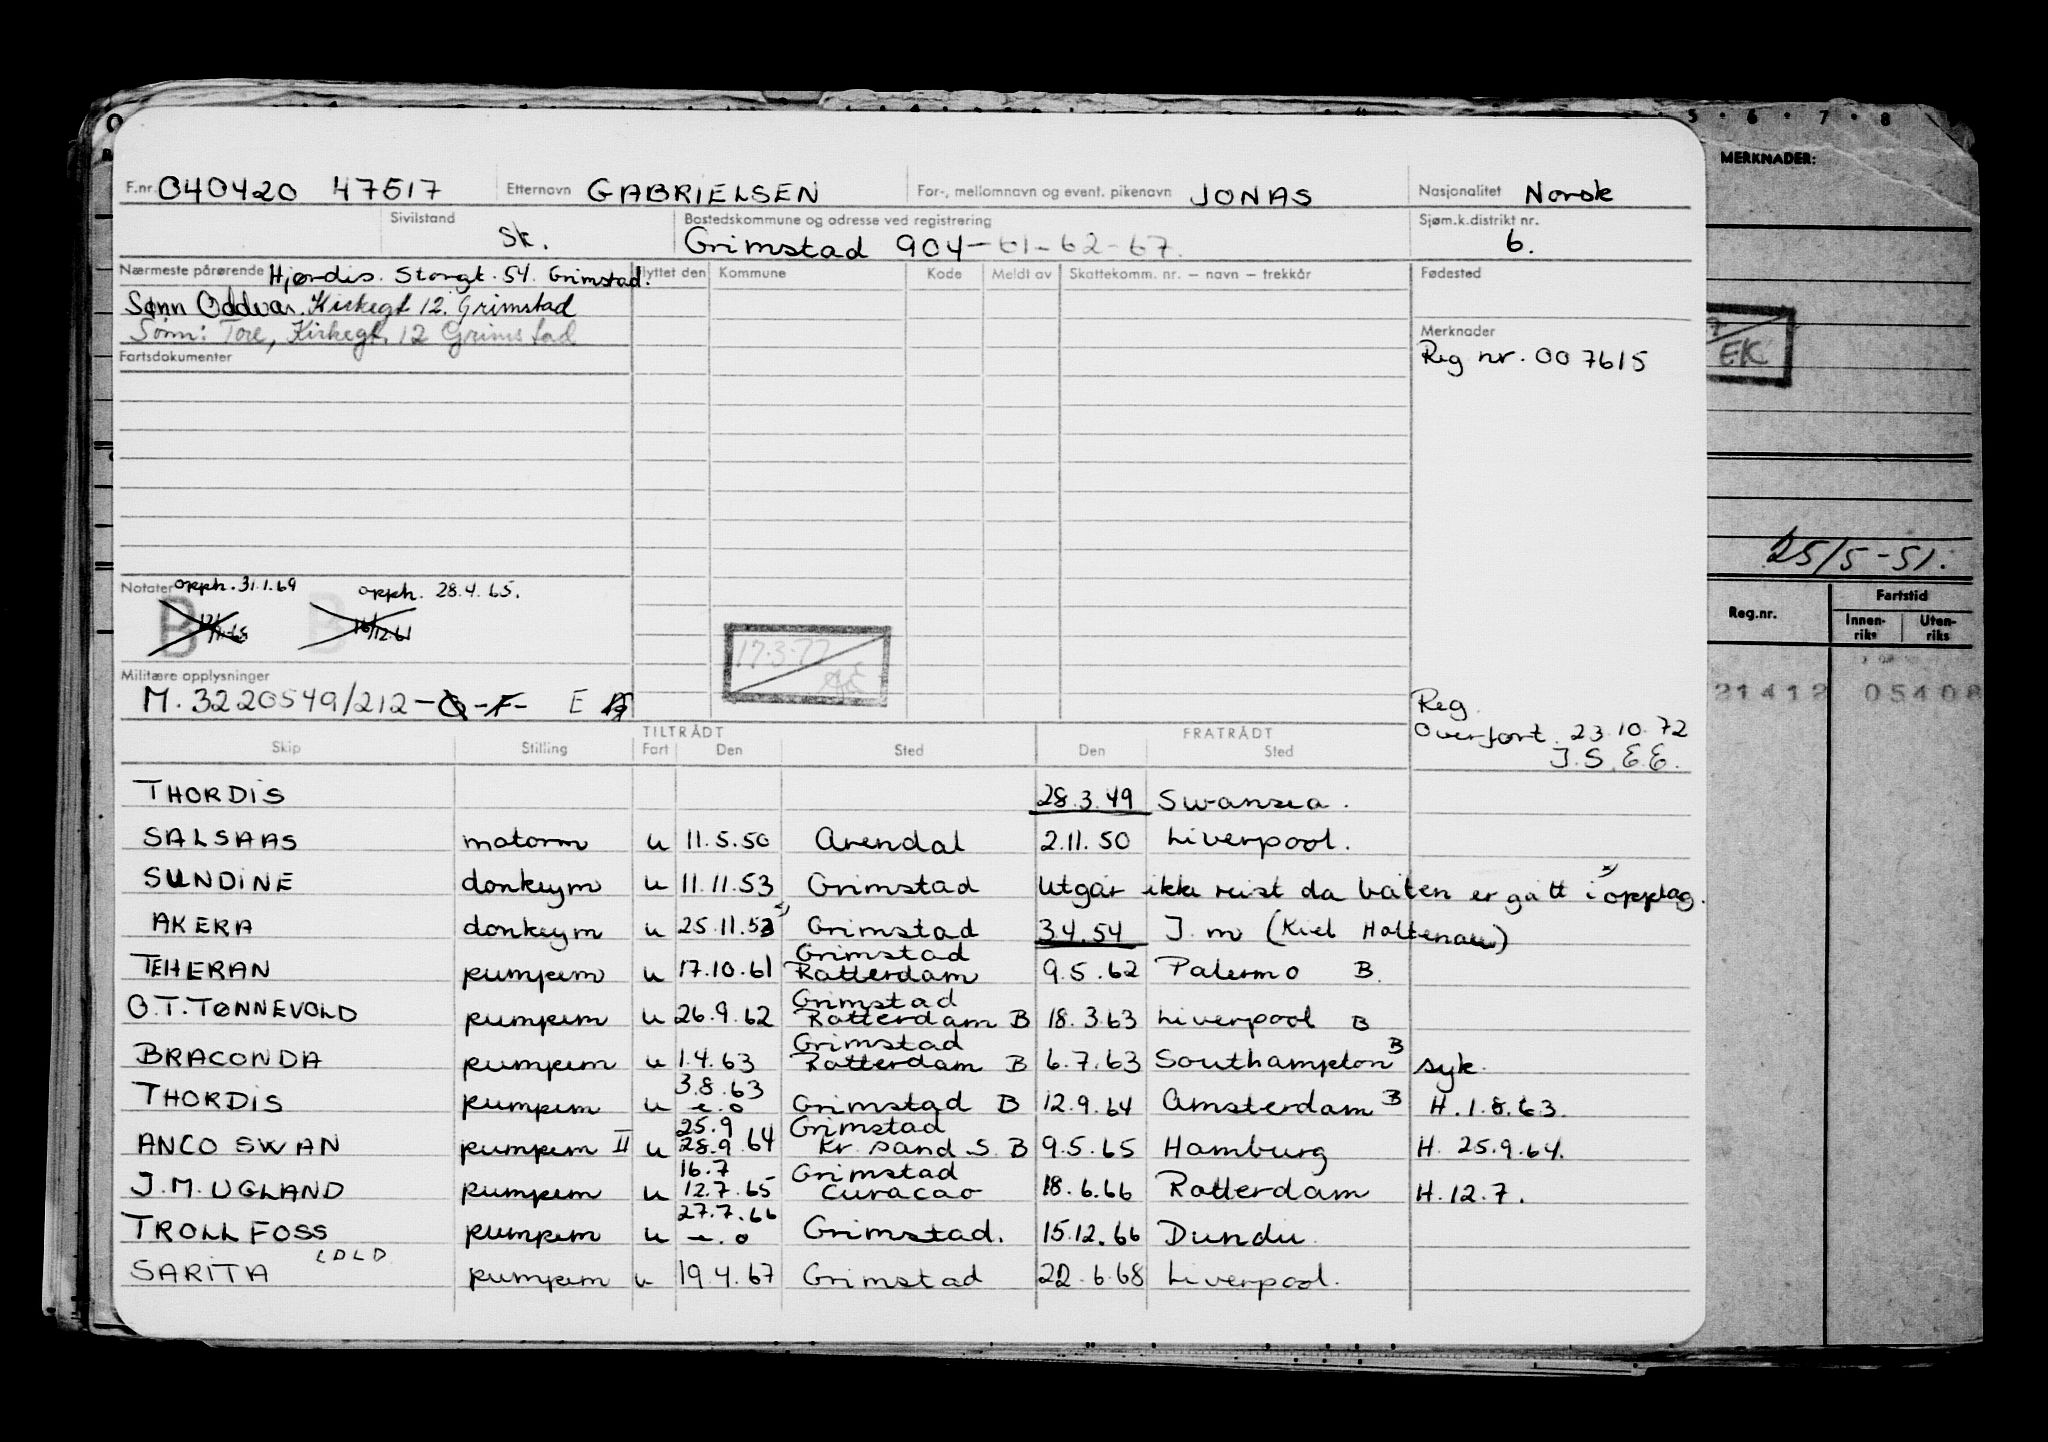 5 · 6 · 7 · 8
MERKNADER:
F.nr. 040420 47517 Etternavn GABRIELSEN For-, mellomnavn og event. pikenavn JONAS Nasjonalitet Norsk
Sivilstand Sk. Bostedskommune og adresse ved registrering Sjøm.k.distrikt nr.
Grimstad 904-61-62-67. 6.
Nærmeste pårørende Hjørdis. Storgt. 54. Grimstad. flyttet den Kommune Kode Meldt av Skattekomm. nr. — navn — trekkår Fødested
Sønn Oddvar. Kirkegt 12. Grimstad
Sønn: Tore, Kirkegt. 12 Grimstad Merknader
Fartsdokumenter Reg nr. 007615
EK
25/5-51.
Notater opph. 31.1.69 opph. 28.4.65.
B B 16/12.61
Reg.nr. Fartstid
Innenriks Utenriks
17.3.77
Militære opplysninger
M. 3220549/212- E
21412 05408
Reg.
Overført. 23.10.72
J.S. E.E.
TILTRÅDT FRATRÅDT
Skip Stilling Fart Den Sted Den Sted
THORDIS 28.3.49 Swansea.
SALSAAS motorm u 11.5.50 Arendal 2.11.50 Liverpool.
SUNDINE donkeym u 11.11.53 Grimstad Utgår ikke reist da båten er gått i opplag.
AKERA donkeym u 25.11.53 Grimstad 3.4.54 J.m (Kiel Holtenau)
TEHERAN pumpem u 17.10.61 Grimstad Rotterdam 9.5.62 Palermo B.
O.T. TØNNEVOLD pumpem u 26.9.62 Grimstad Rotterdam B 18.3.63 Liverpool B
BRACONDA pumpem u 1.4.63 Grimstad Rotterdam B 6.7.63 Southampton B syk.
THORDIS pumpem u 3.8.63 e.o Grimstad B 12.9.64 Amsterdam B H. 1.8.63.
ANCO SWAN pumpem II u 25.9 28.9.64 Grimstad Kr. sand S. B 9.5.65 Hamburg H. 25.9.64.
J.M. UGLAND pumpem u 16.7 12.7.65 Grimstad Curacao 18.6.66 Rotterdam H. 12.7.
TROLL FOSS pumpem u 27.7.66 e.o Grimstad. 15.12.66 Dundee.
SARITA pumpem u 19.4.67 Grimstad 22.6.68 Liverpool.